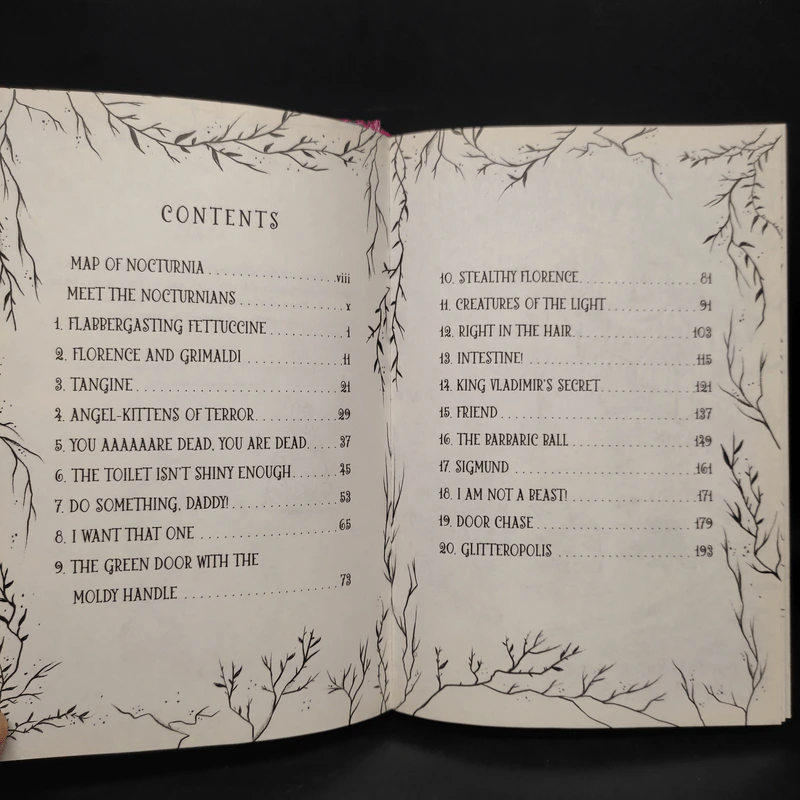 CONTENTS
MAP OF NOCTURNIA ........................ viii
MEET THE NOCTURNIANS .................... x
1. FLABBERGASTING FETTUCCINE ............ 1
2. FLORENCE AND GRIMALDI ................ 11
3. TANGINE .............................. 21
4. ANGEL-KITTENS OF TERROR .............. 29
5. YOU AAAAAARE DEAD, YOU ARE DEAD ...... 37
6. THE TOILET ISN'T SHINY ENOUGH ........ 45
7. DO SOMETHING, DADDY! ................. 53
8. I WANT THAT ONE ...................... 65
9. THE GREEN DOOR WITH THE
MOLDY HANDLE ............................ 73
10. STEALTHY FLORENCE ................... 81
11. CREATURES OF THE LIGHT .............. 91
12. RIGHT IN THE HAIR ................... 103
13. INTESTINE! .......................... 115
14. KING VLADIMIR'S SECRET .............. 121
15. FRIEND .............................. 137
16. THE BARBARIC BALL ................... 149
17. SIGMUND ............................. 161
18. I AM NOT A BEAST! ................... 171
19. DOOR CHASE .......................... 179
20. GLITTEROPOLIS ....................... 193